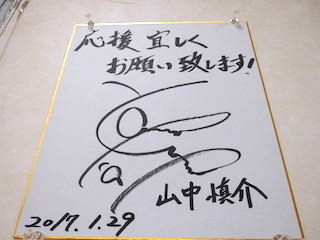 応援 宜しく
お願い致します!
山中慎介
2017.1.29